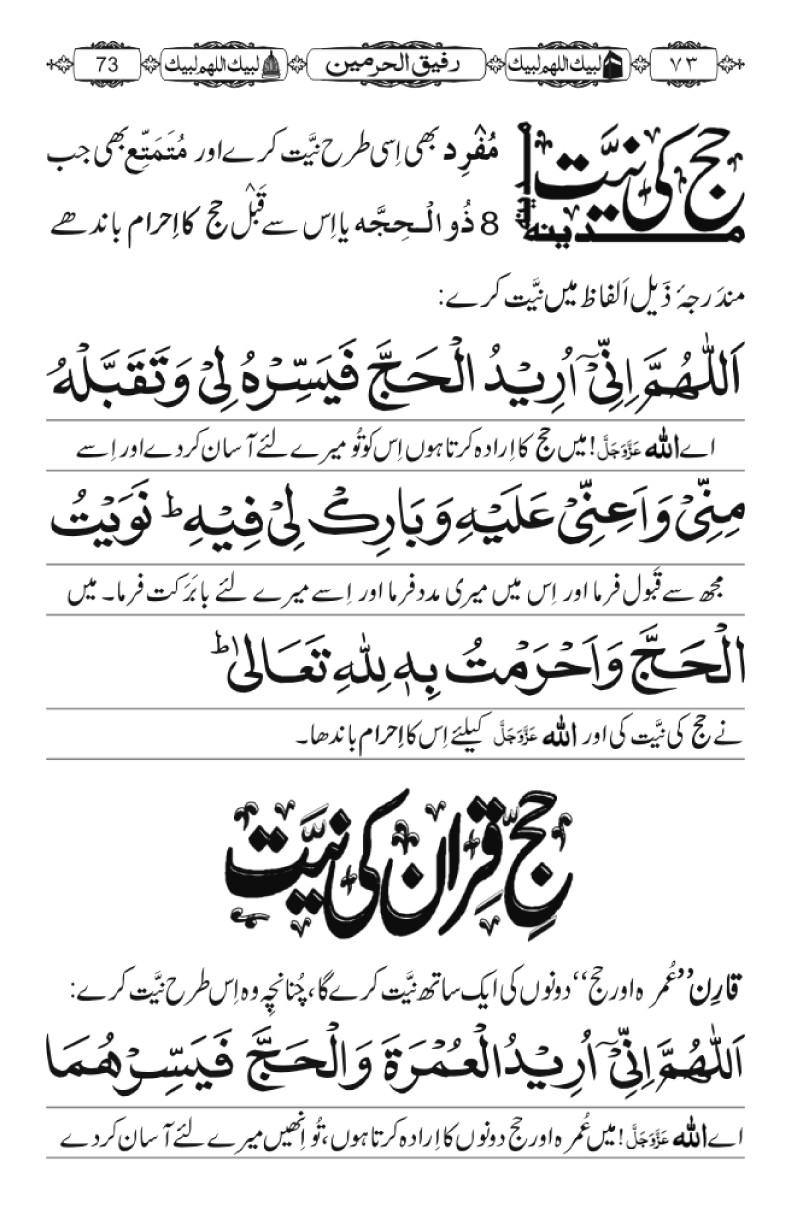 ٧٣ لبیك اللهم لبیك رفیق الحرمین لبیك اللهم لبیك 73
حج کی نیَّت
مُفْرِد بھی اِسی طرح نیَّت کرے اور مُتَمَتِّع بھی جب
مدینہ
8 ذُو الْحِجَّه یا اِس سے قَبْل حج کا اِحرام باندھے
مندَرجۂ ذَیل اَلفاظ میں نیَّت کرے:
اَللّٰهُمَّ اِنِّیْۤ اُرِیْدُ الْحَجَّ فَیَسِّرْهُ لِیْ وَ تَقَبَّلْهُ
اے اللّٰه عَزَّوَجَلَّ! میں حج کا اِرادہ کرتا ہوں اِس کو تُو میرے لئے آسان کردے اور اِسے
مِنِّیْ وَ اَعِنِّیْ عَلَیْهِ وَ بَارِكْ لِیْ فِیْهِ ؕ نَوَیْتُ
مجھ سے قَبول فرما اور اِس میں میری مدد فرما اور اِسے میرے لئے بابَرَکت فرما۔ میں
الْحَجَّ وَ اَحْرَمْتُ بِهٖ لِلّٰهِ تَعَالٰی ؕ
نے حج کی نیَّت کی اور اللّٰه عَزَّوَجَلَّ کیلئے اِس کا اِحرام باندھا۔
حجِّ قِران کی نیَّت
قارِن ’’عُمرہ اور حج‘‘ دونوں کی ایک ساتھ نیَّت کرے گا، چُنانچِہ وہ اِس طرح نیَّت کرے:
اَللّٰهُمَّ اِنِّیْۤ اُرِیْدُ الْعُمْرَةَ وَ الْحَجَّ فَیَسِّرْهُمَا
اے اللّٰه عَزَّوَجَلَّ! میں عُمرہ اور حج دونوں کا اِرادہ کرتا ہوں، تُو اِنھیں میرے لئے آسان کردے